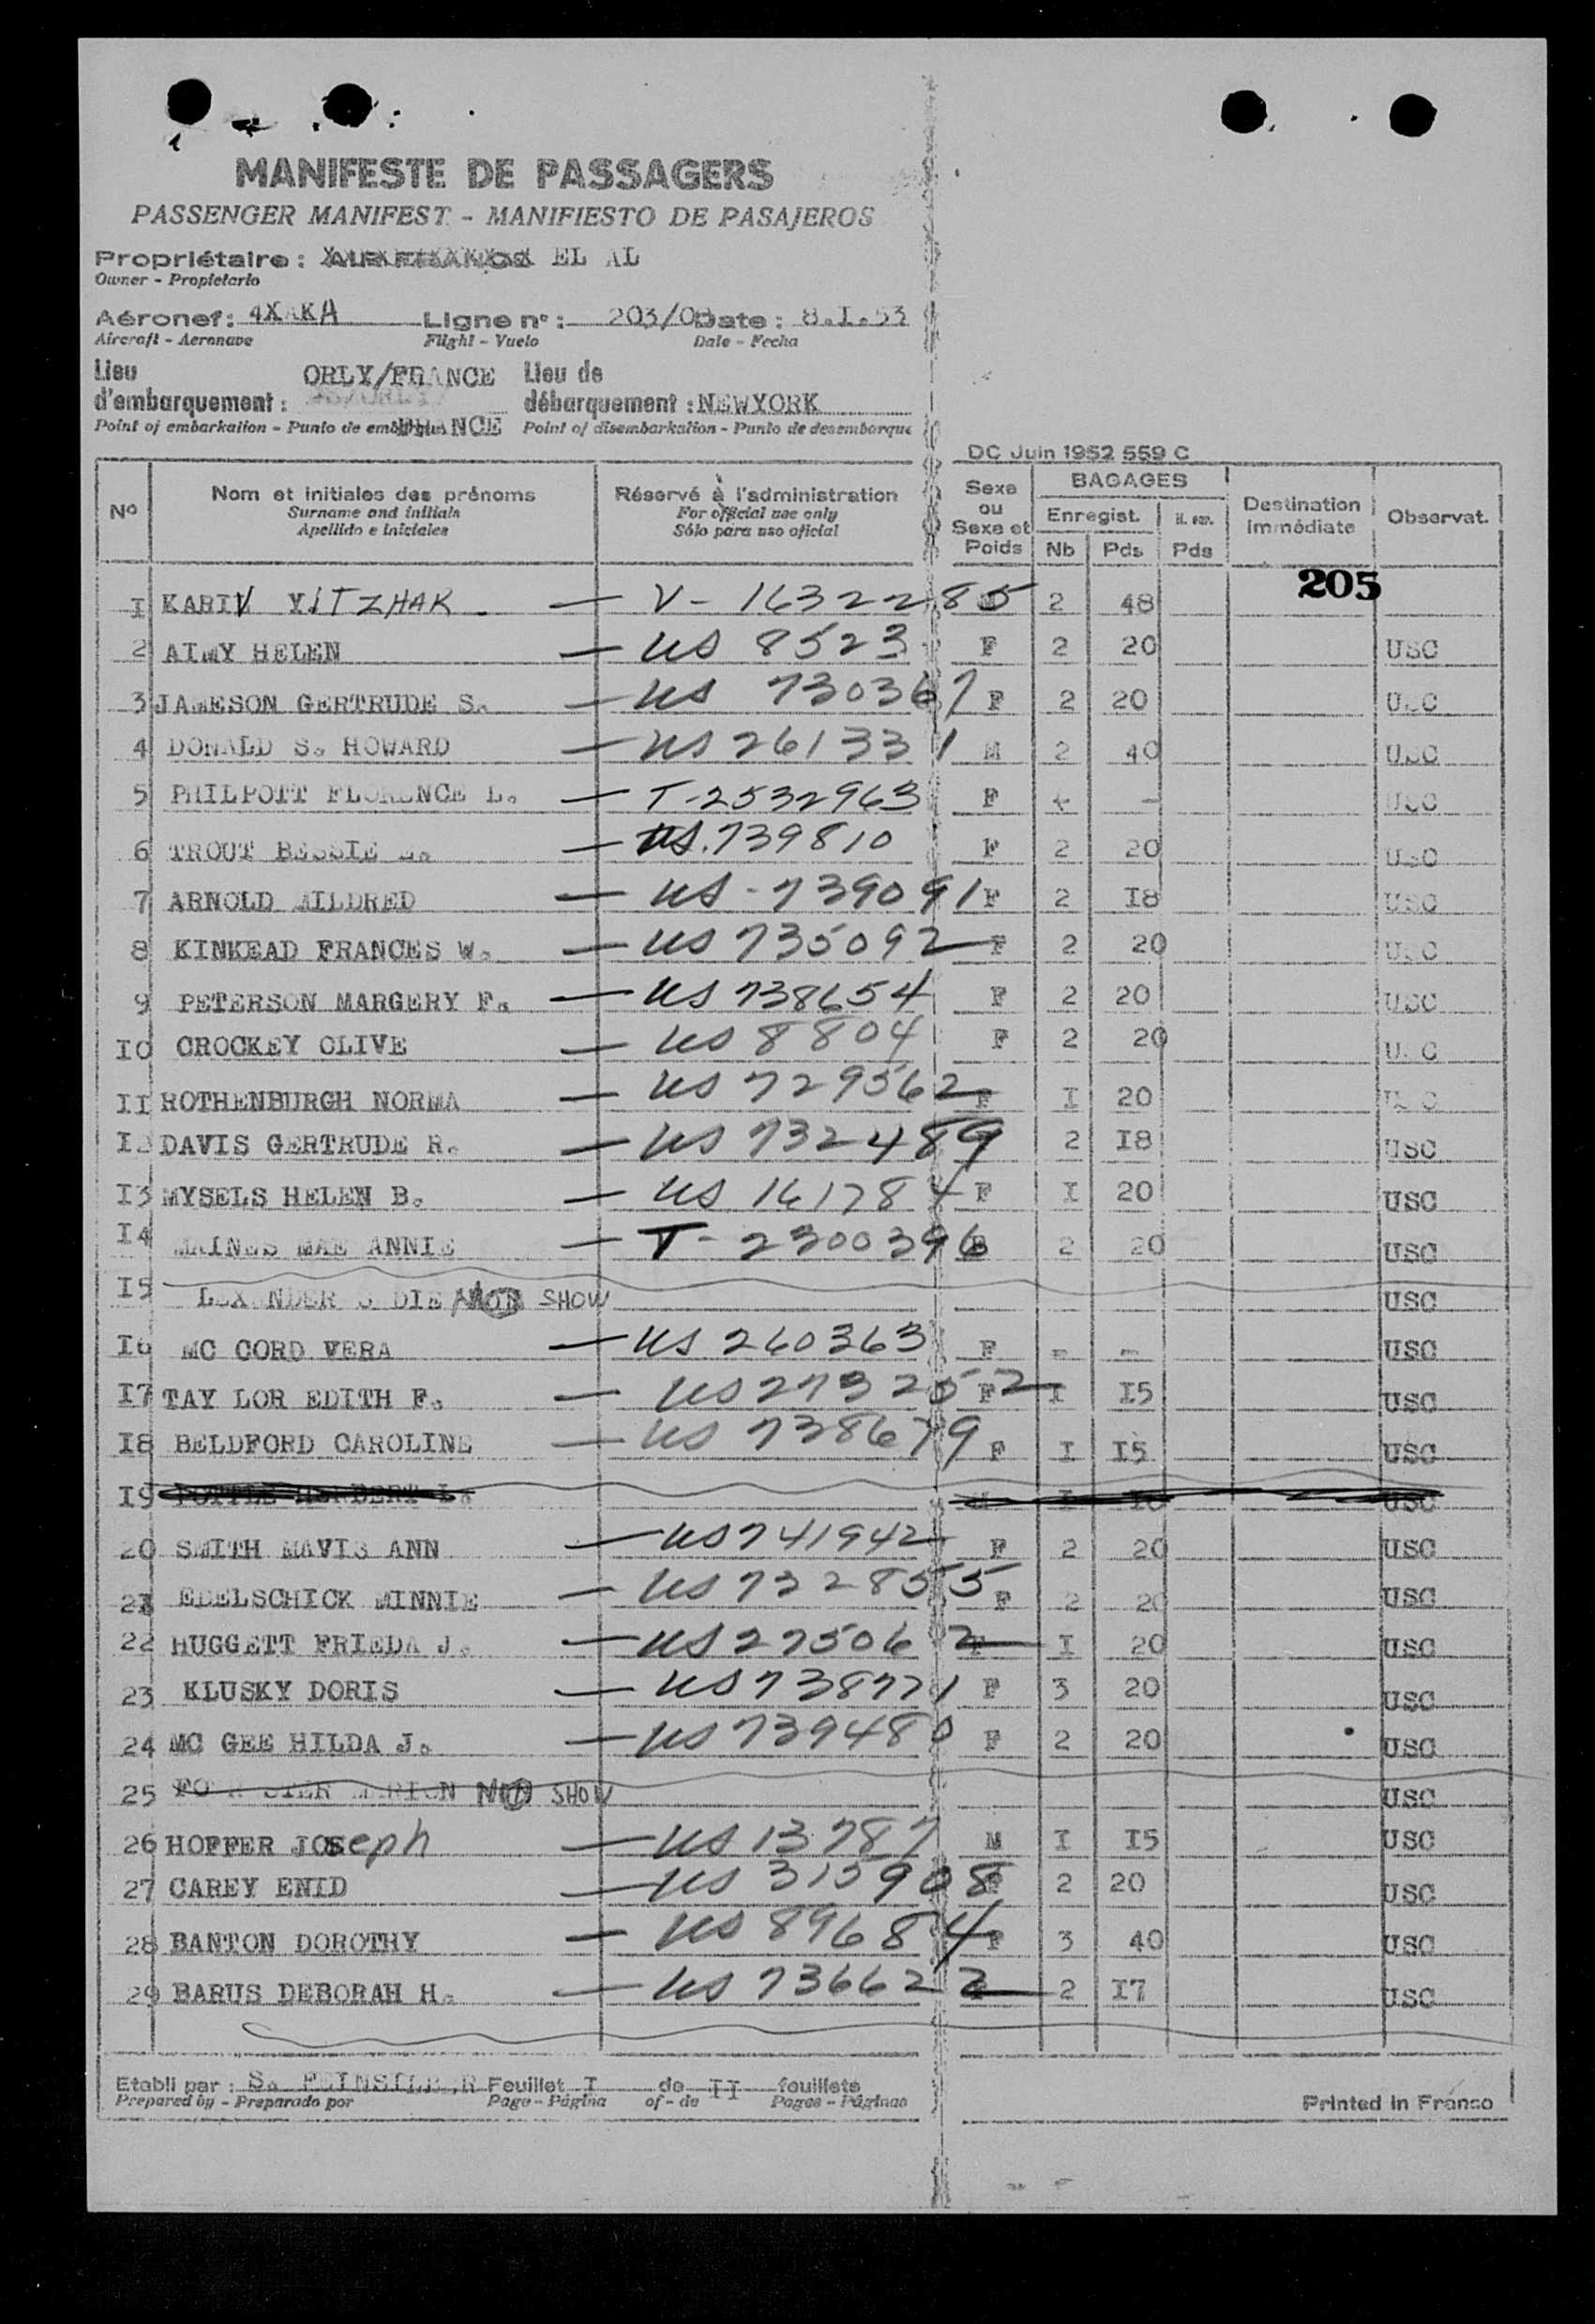 MANIFESTE DE PASSAGERS
PASSENGER MANIFEST - MANIFIESTO DE PASAJEROS
Propriétaire : EL AL
Owner - Propietario
Aéronef : 4XAKA Ligne n° : 203/0 Date : 8.I.53
Aircraft - Aeronave Flight - Vuelo Date - Fecha
Lieu d'embarquement : ORLY/FRANCE Lieu de débarquement : NEWYORK
Point of embarkation - Punto de FRANCE Point of disembarkation - Punto de desembarque
DC Juin 1952 559 C
Nº Nom et initiales des prénoms Réservé à l'administration Sexe ou Sexe et Poids BAGAGES Destination immédiate Observat.
Surname and initials For official use only Enregist.
Apellido e iniciales Sólo para uso oficial Nb Pds Pds
205
I KARIV YITZHAK - V - 16322285 2 48
2 AIMY HELEN - US 8523 F 2 20 USC
3 JAMESON GERTRUDE S. - US 730367 F 2 20 USC
4 DONALD S. HOWARD - US 261331 M 2 40 USC
5 PHILPOTT FLORENCE L. - T-2532963 F - USC
6 TROUT BESSIE - US.739810 F 2 20 USC
7 ARNOLD MILDRED - US-739091 F 2 I8 USC
8 KINKEAD FRANCES W. - US 735092 F 2 20 USC
9 PETERSON MARGERY F. - US 738654 F 2 20 USC
I0 CROCKEY OLIVE - US 8804 F 2 20 USC
II ROTHENBURGH NORMA - US 729562 F I 20 USC
I2 DAVIS GERTRUDE R. - US 732489 2 I8 USC
I3 MYSELS HELEN B. - US 161784 F I 20 USC
I4 MAINES MAE ANNIE - T-2300396 2 20 USC
I5 SHOW USC
I6 MC CORD VERA - US 260363 F - - USC
I7 TAY LOR EDITH F. - US 273252 F I I5 USC
I8 BELDFORD CAROLINE - US 738679 F I I5 USC
I9 USC
20 SMITH MAVIS ANN - US 741942 F 2 20 USC
21 EDELSCHICK MINNIE - US 732855 F 2 20 USC
22 HUGGETT FRIEDA J. - US 275062 I 20 USC
23 KLUSKY DORIS - US 738771 F 3 20 USC
24 MC GEE HILDA J. - US 739480 F 2 20 USC
25 NON SHOW USC
26 HOFFER JOSeph - US 13787 M I I5 USC
27 CAREY ENID - US 315908 2 20 USC
28 BANTON DOROTHY - US 89684 F 3 40 USC
29 BARUS DEBORAH H. - US 736622 2 I7 USC
Etabli par : S. FEINSILBER Feuillet I de II feuillets
Prepared by - Preparado por Page - Página of - de Pages - Páginas Printed in France